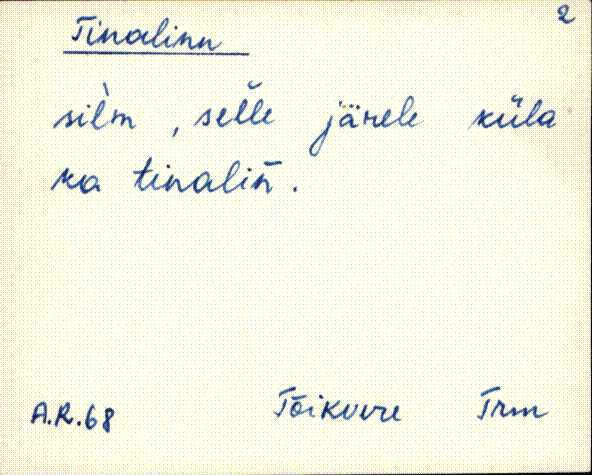 2
Tinalinn
sil̀m, sel̆le järele küla
ka tinalin̄.
A.R.68 Tõikvere Trm